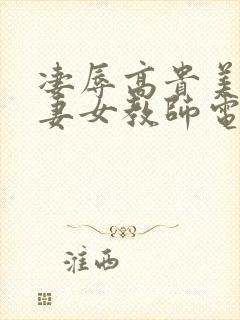 凌辱高貴美
妻女教師電
淮西